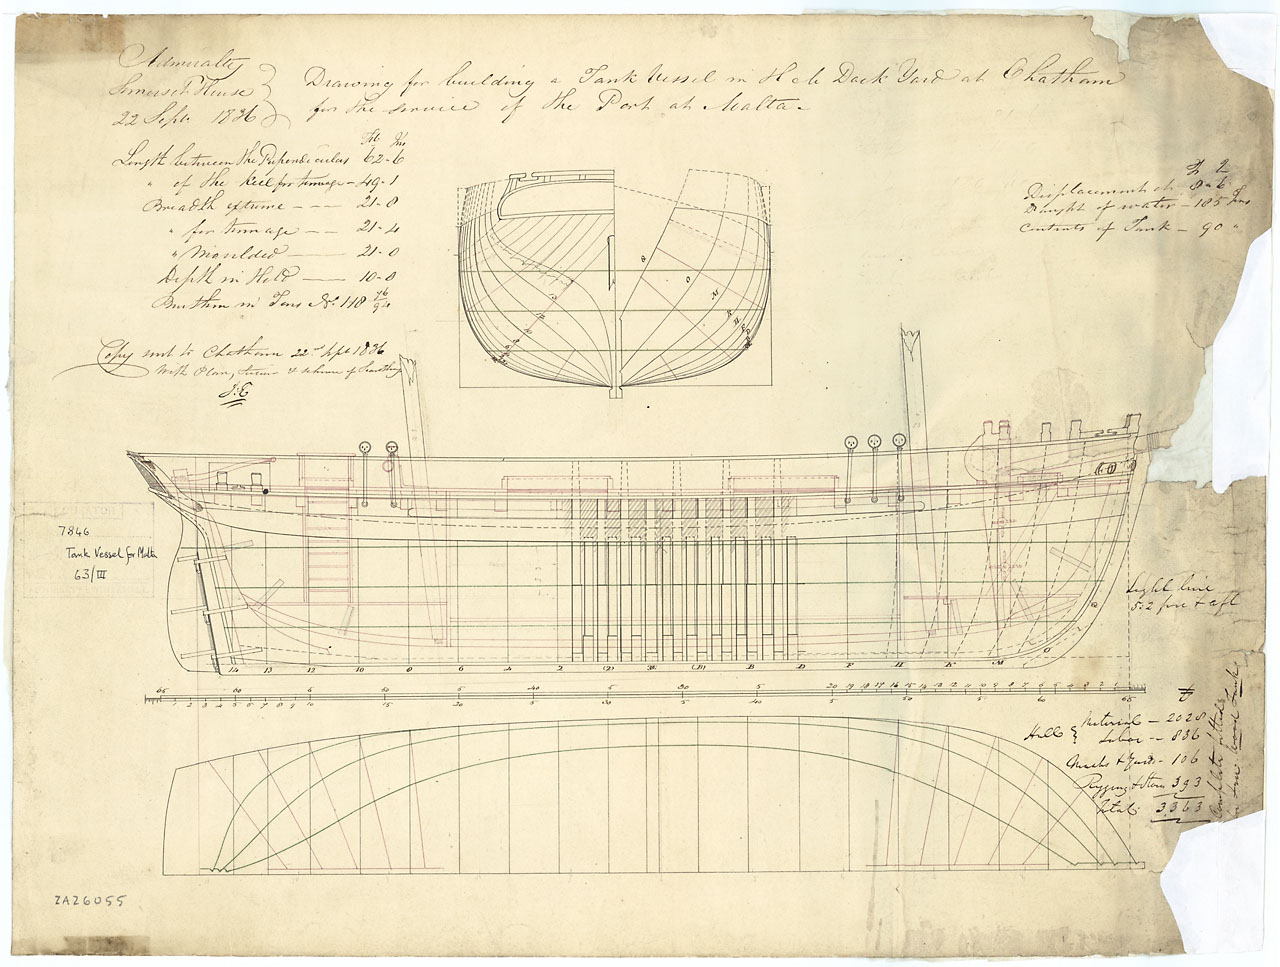 Admiralty
Somerset House
22 Septr 1836
Drawing for building a Tank Vessel in H.M. Dock Yard at Chatham
for the service of the Port at Malta.
Ft Ins
Length between the Perpendiculars 62-6
" of the Keel for tonnage - 49-1
Breadth extreme - - - 21-8
" for tonnage - - 21-4
" Moulded - - 21-0
Depth in Hold - 10-0
Burthen in Tons No. 118 76/94
Displacement at 8-6
Draught of water - 185 Tons
Contents of Tank - 90 "
Copy sent to Chatham 22nd Septr 1836
with Plan, & scheme of Scantling
7846
Tank Vessel for Malta
63/III
Light line
5.2 fore & aft
14 13 12 10 8 6 4 2 (2) (B) B D F H K M O
£
Hull { Material - 2028
Labor - 836
Masts & Yards - 106
Rigging & Stores 393
Total 3363
Complete fitted
ZAZ6055